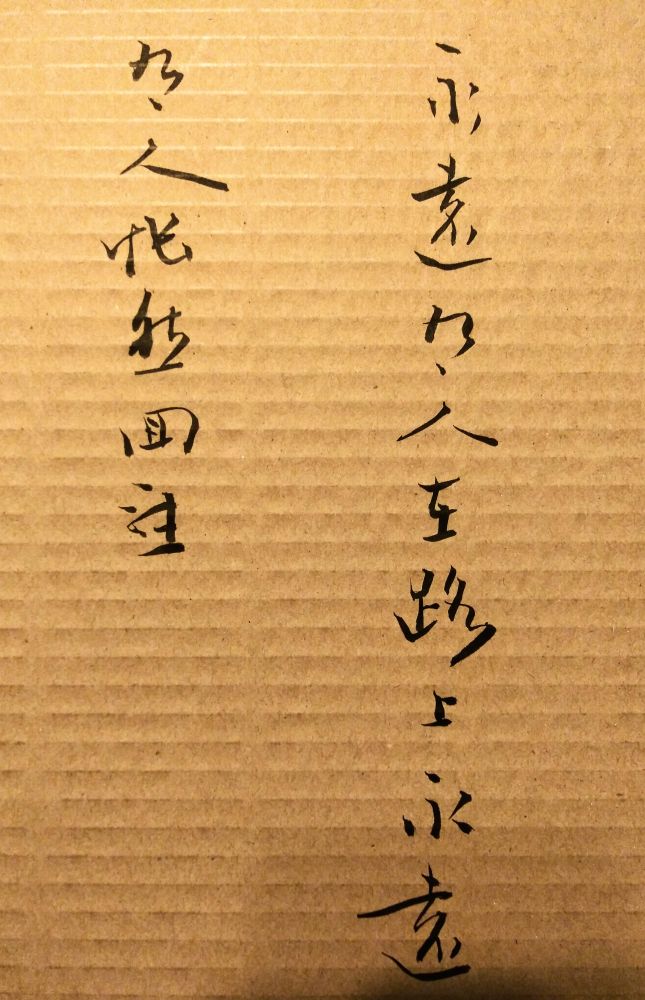 永遠有人在路上永遠
有人悵然回望